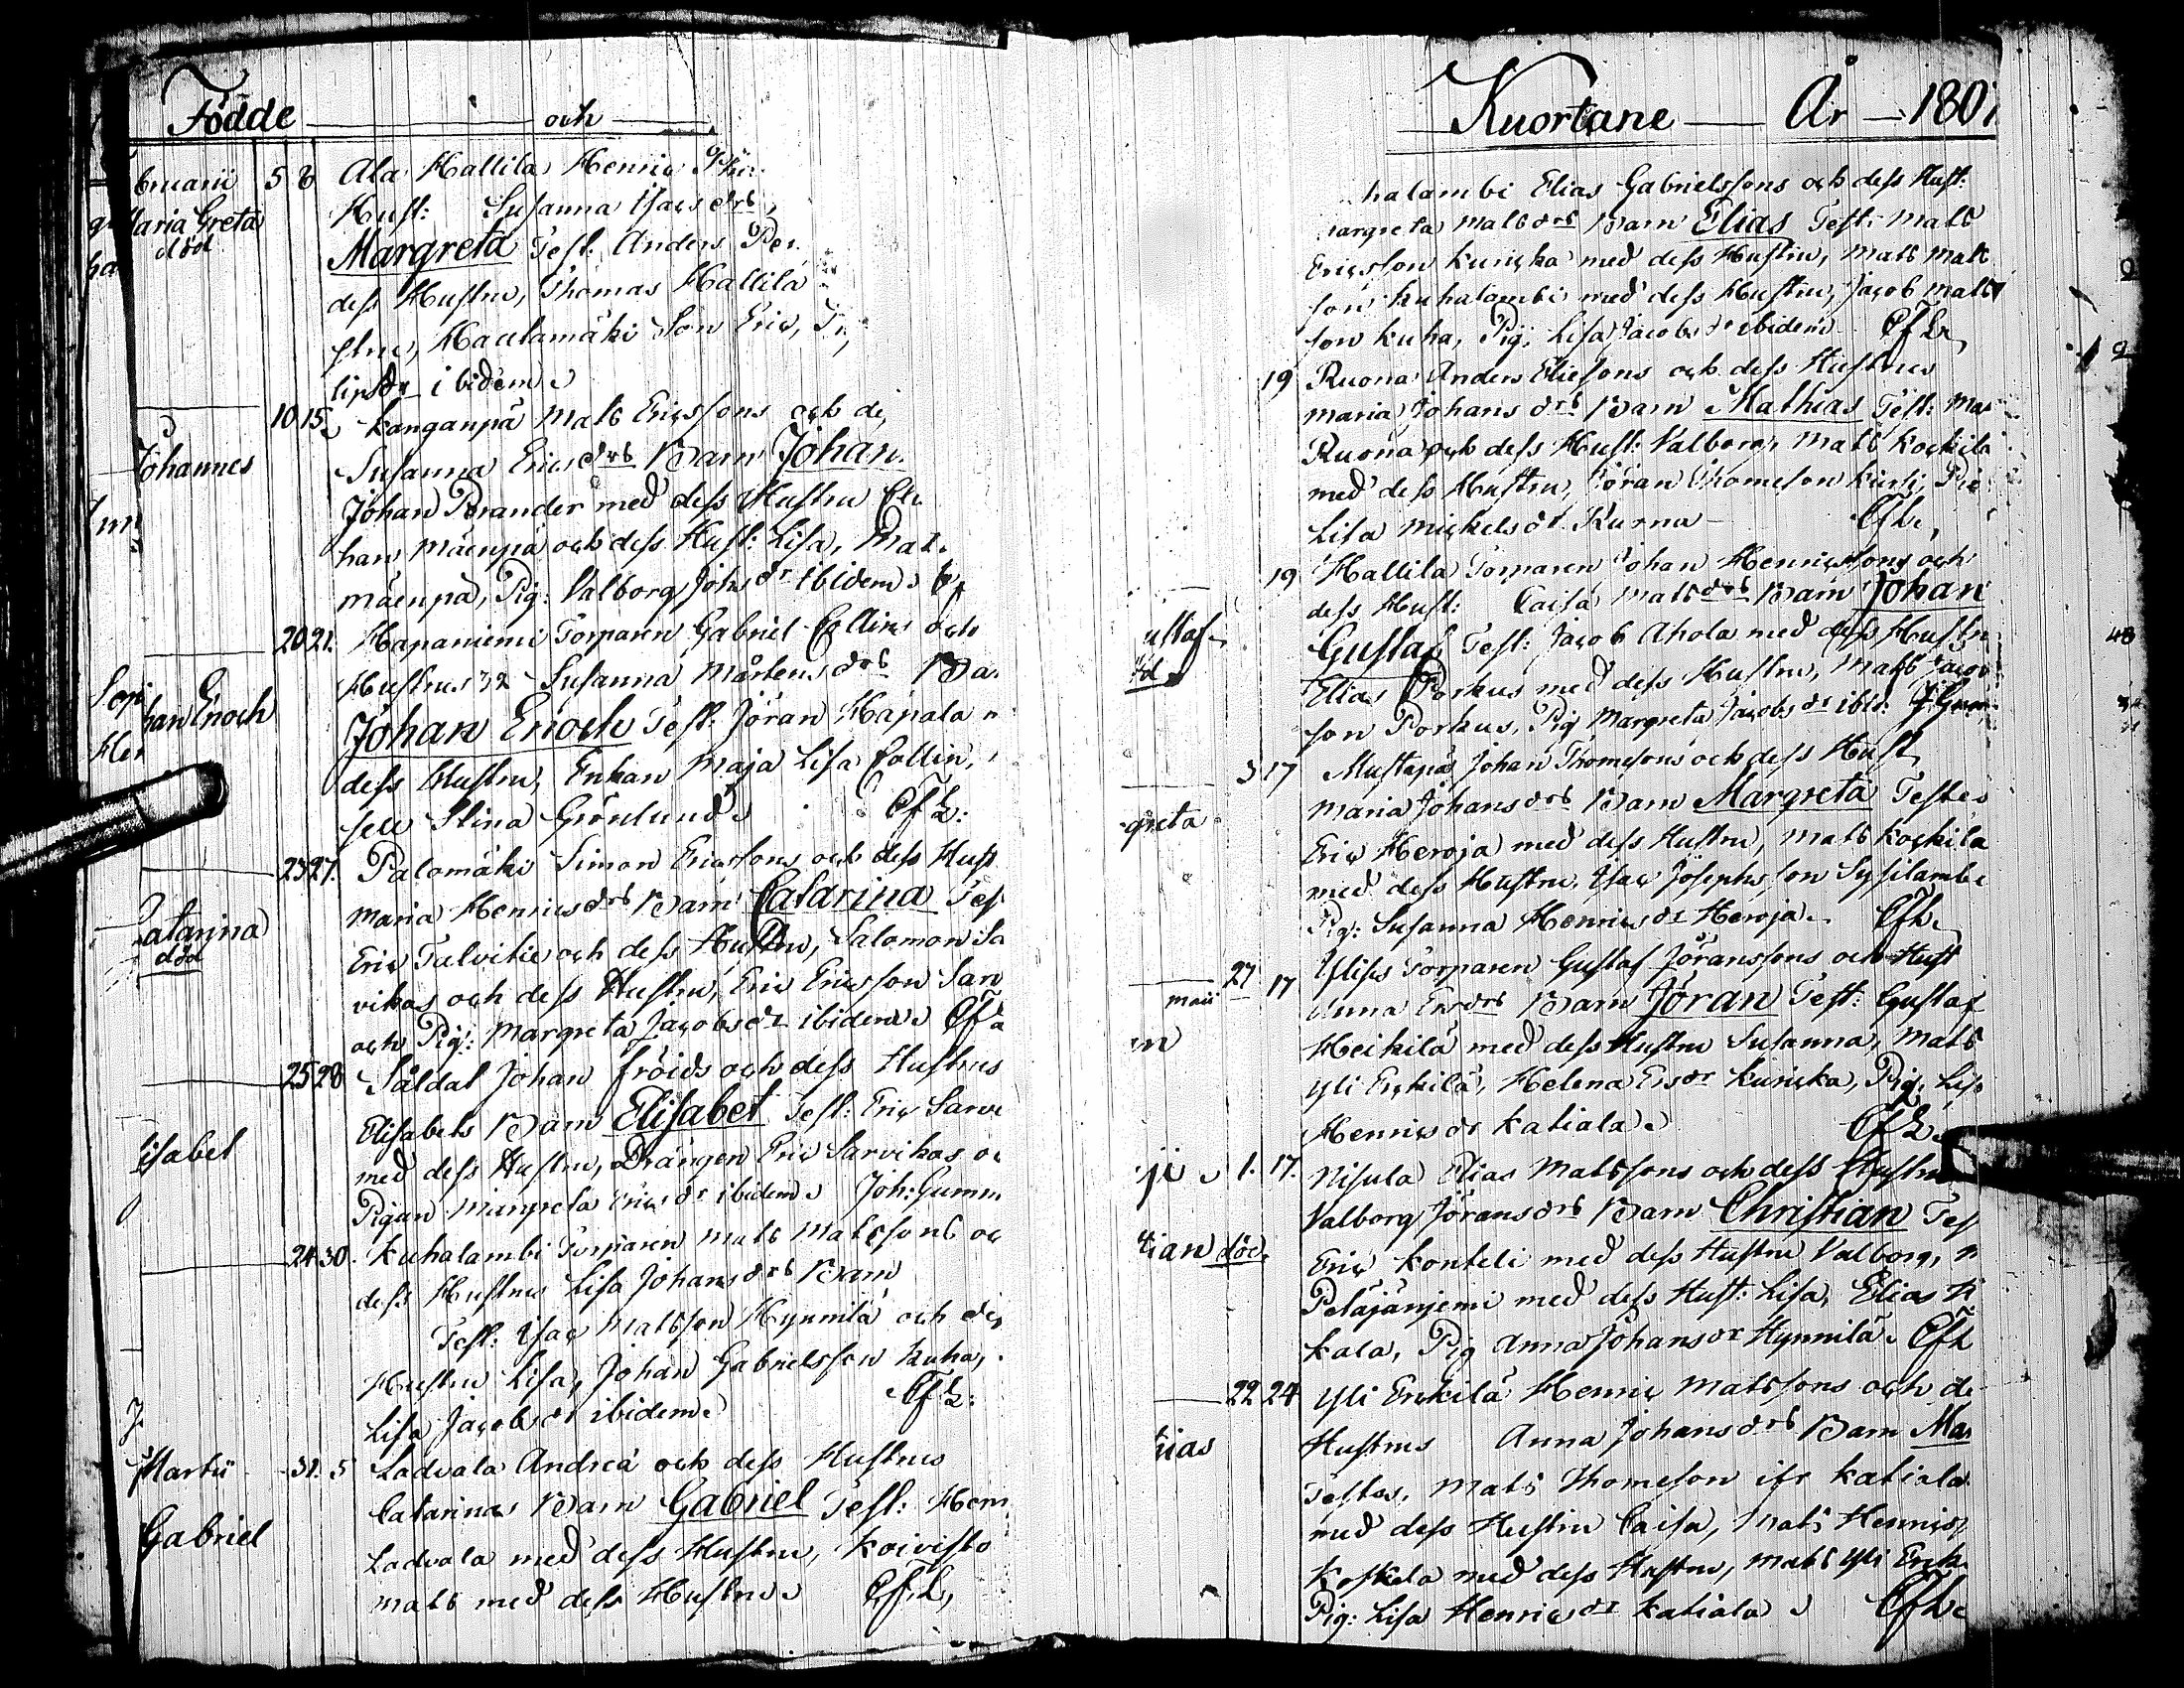 Födde och
bruarii 5 8 Ala Hallila Henric
Maria Greta Hust: Susanna Isacsdrs
död Margreta Test. Anders Per
dess Hustru, Thomas Hallila
stru, Haulamäki Son Eric,
lipsdr ibidem
10 15. Kanganpä Matts Ericssons och de
Johannes Susanna Ericsdrs Barn Johan.
Johan Brander med dess Hustru
han Mäenpä och dess Hust: Lisa, Mat
Mäenpä, Pig: Valborg Johsdr ibidem
20 21. Hapaniemi Torparen Gabriel Collins och
Hustrus 32 Susanna Mårtensdrs Ba
han Enoch Johan Enoch Test. Jöran Hapala
dess Hustru, Enkan Maja Lisa Collin,
sell Stina Grönlund CfL:
23 27. Palomäki Simon Ericssons och dess Hust
Maria Henricsdrs Barn Catarina Test
Catarina Eric Tulvitie och dess Hustru, Salomon Sa
död vikas och dess Hustru, Eric Ericsson Sar
och Pig: Margreta Jacobsdr ibidem CfL
25 28 Såldat Johan Fröids och dess Hustrus
Elisabets Barn Elisabet Test: Eric Sarvi
lisabet med dess Hustru, Drängen Eric Sarvikas oc
Pigan Margreta Ericsdr ibidem Joh: Gumm
24 30. Kuhalambi Torparen Matts Matssons oc
dess Hustrus Lisa Johansdrs Barn
Test: Isac Matsson Hynnilä och des
Hustru Lisa, Johan Gabrielsson Kuha,
Lisa Jacobsdr ibidem CfL:
Martii 31. 5 Ladvala Andreä och dess Hustrus
Catarinas Barn Gabriel Test: Hen
Gabriel Ladvala med dess Hustru, Koivisto
Matts med dess Hustru CfL,
Kuortane År 1801
halambi Elias Gabrielssons och dess Hust:
argreta Matsdrs Barn Elias Test: Mats
Ericsson Kuricka med dess Hustru, Mats Mats
son Kuhalambi med dess Hustru, Jacob Mats
son Kuha, Pig. Lisa Jacobsdr ibidem CfL
19 Ruona Anders Eliesons och dess Hustrus
Maria Johansdrs Barn Mathias Test: Mat
Ruona och dess Hust: Valborg, Mats Kockila
med dess Hustru, Jöran Thomeson Kursi, Pig
Lisa Mickelsdr Ruona CfL,
19 Hallila Torparen Johan Henricssons och
dess Hust: Caisa Matsdrs Barn Johan
ustaf Gustaf Test: Jacob Ahola med dess Hustru
död Elias Porkus med dess Hustru, Mats Jacob
son Porkus, Pig Margreta Jacobsdr ibid:
3 17 Mustapä Johan Thomesons och dess Hust
Maria Johansdrs Barn Margreta Testes
greta Eric Heroja med dess Hustru, Mats Kockila
med dess Hustru, Isac Josephsson Sysilambi
Pig: Susanna Henricsdr Heroja CfL
27 17 Ylisis Torparen Gustaf Jöranssons och Hust
maii Anna Ersdrs Barn Jöran Test: Gustaf
n Heikilä med dess Hustru Susanna, Mats
Yli Erckilä, Helena Ersdr Kuricka, Pig. Lisa
Henricsdr Katiala CfL
1. 17. Nisula Elias Matssons och dess Hustru
Valborg Jöransdrs Barn Christian Test
tian död. Eric Konteli med dess Hustru Valborg,
Peläjänjemi med dess Hust: Lisa, Elias
kala, Pig Anna Johansdr Hynnilä CfL
22 24 Yli Erckilä Henric Matssons och de
hias Hustrus Anna Johansdrs Barn Ma
Testes, Mats Thomeson ifr Katiala
med dess Hustru Caisa, Mats Henrics
Koskela med dess Hustru, Mats Yli Erck
Pig: Lisa Henricsdr Katiala CfL